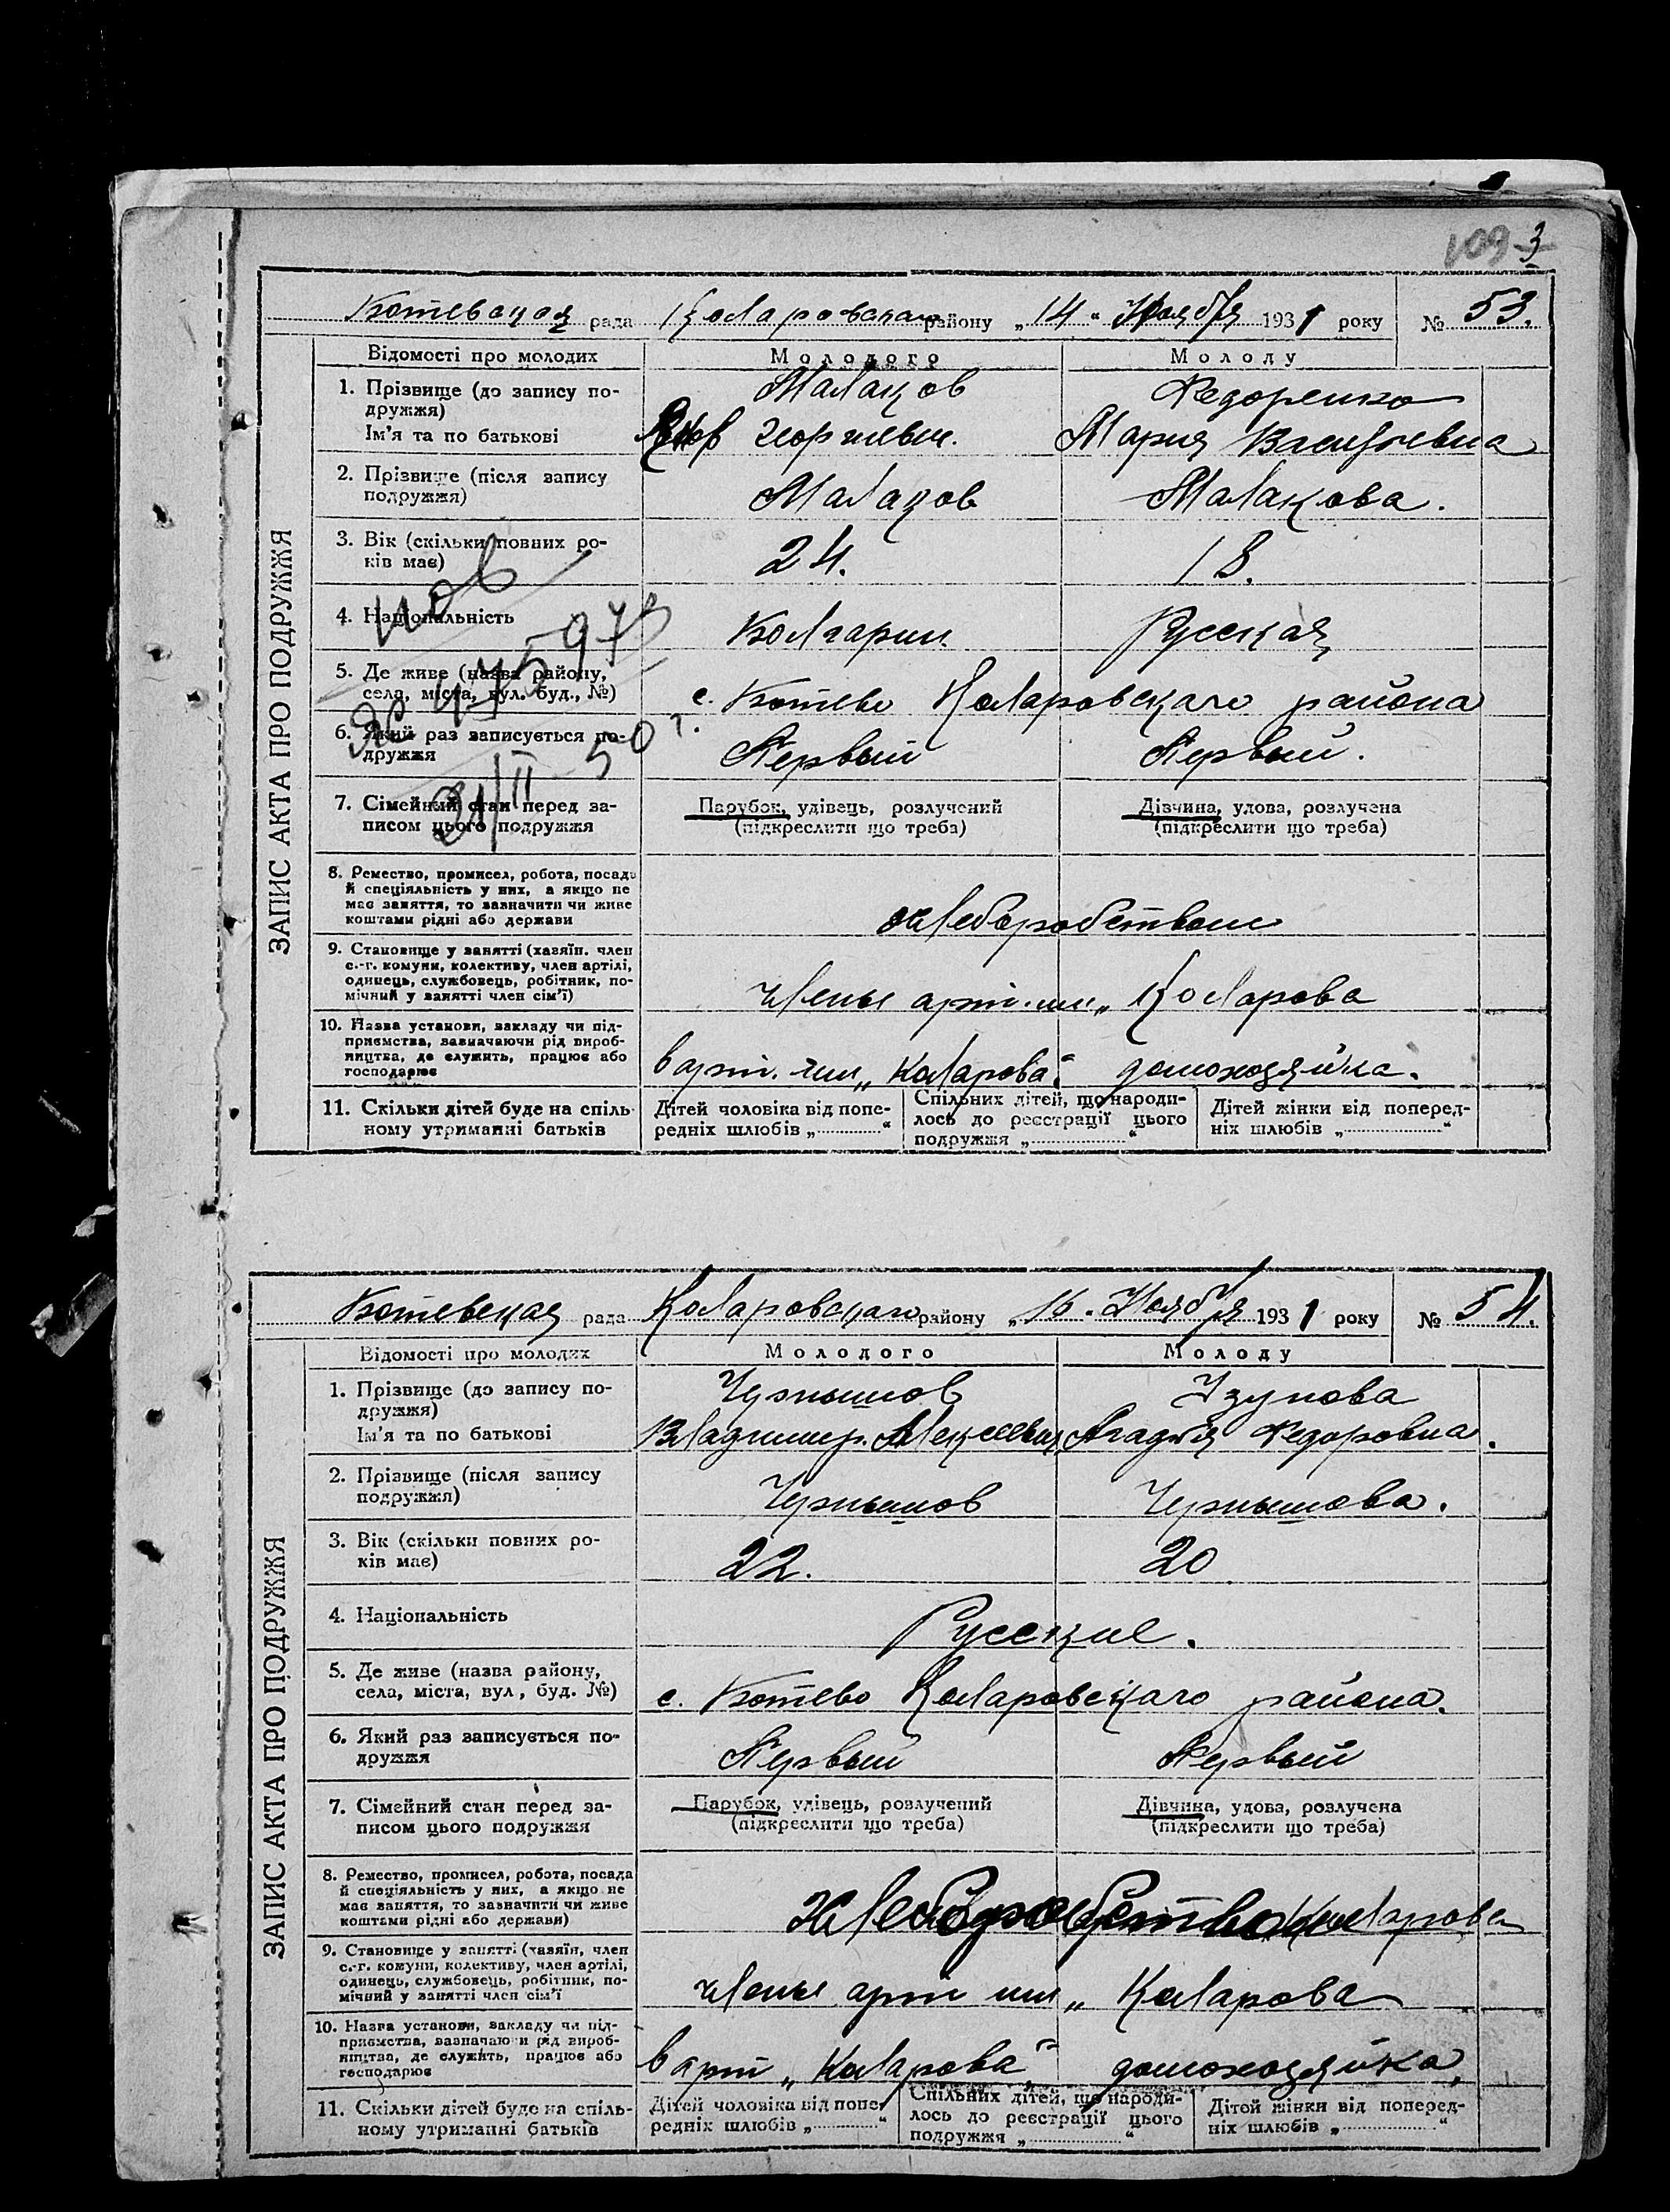 109 3
Ботевская рада Коларовского району „14“ Ноября 1931 року № 53.
ЗАПИС АКТА ПРО ПОДРУЖЖЯ
Відомості про молодих Молодого Молоду
1. Прізвище (до запису по- Малаков Федоренко
дружжя)
Ім'я та по батькові Яков Георгиевич. Мария Васильевна
2. Прізвище (після запису
подружжя) Малаков Малакова.
3. Вік (скільки повних ро-
ків має) 24. 18.
4. Національність Болгарин. Русская
5. Де живе (назва району,
села, міста, вул. буд., №) с. Ботево Коларовского района
6. Який раз записується по-
дружжя Первый Первый.
7. Сімейний стан перед за- Парубок, удівець, розлучений Дівчина, удова, розлучена
писом цього подружжя (підкреслити що треба) (підкреслити що треба)
8. Ремество, промисел, робота, посада
й спеціяльність у них, а якщо не
має заняття, то зазначити чи живе
коштами рідні або держави хлеборобством
9. Становище у занятті (хазяїн. член
с.-г. комуни, колективу, член артілі,
одинець, службовець, робітник, по-
мічний у занятті член сім'ї) члены арт. им. „Коларова
10. Назва установи, закладу чи під-
приємства, зазначаючи рід вироб-
ництва, де служить, працює або
господарює в арт. им „Коларова“. домохозяйка.
11. Скільки дітей буде на спіль- Дітей чоловіка від попе- Спільних дітей, що народи- Дітей жінки від поперед-
ному утриманні батьків редніх шлюбів „ “ лось до реєстрації цього ніх шлюбів „ “
подружжя „ “
Ботевская рада Коларовского району „16. Ноября 1931 року № 54.
ЗАПИС АКТА ПРО ПОДРУЖЖЯ
Відомості про молодих Молодого Молоду
1. Прізвище (до запису по- Чернышов Узунова
дружжя)
Ім'я та по батькові Владимир. Алексеевич Агафья Федоровна.
2. Прізвище (після запису
подружжя) Чернышов Чернышова.
3. Вік (скільки повних ро-
ків має) 22. 20
4. Національність Русские.
5. Де живе (назва району,
села, міста, вул, буд. №) с. Ботево Коларовского района.
6. Який раз записується по-
дружжя Первый Первый
7. Сімейний стан перед за- Парубок, удівець, розлучений Дівчина, удова, розлучена
писом цього подружжя (підкреслити що треба) (підкреслити що треба)
8. Ремество, промисел, робота, посада
й спеціяльність у них, а якщо не
має заняття, то зазначити чи живе
коштами рідні або держави) Хлеборобством Коларова
9. Становище у занятті (хазяїн, член
с.-г. комуни, колективу, член артілі,
одинець, службовець, робітник, по-
мічний у занятті член сім'ї члены арт им „ Коларова
10. Назва установи, закладу чи під-
приємства, зазначаючи рід вироб-
ництва, де служить, працює або
господарює в арт „ Коларова“ домохозяйка,
11. Скільки дітей буде на спіль- Дітей чоловіка від попе- Спільних дітей, що народи- Дітей жінки від поперед-
ному утриманні батьків редніх шлюбів „ “ лось до реєстрації цього ніх шлюбів „ “
подружжя „ “